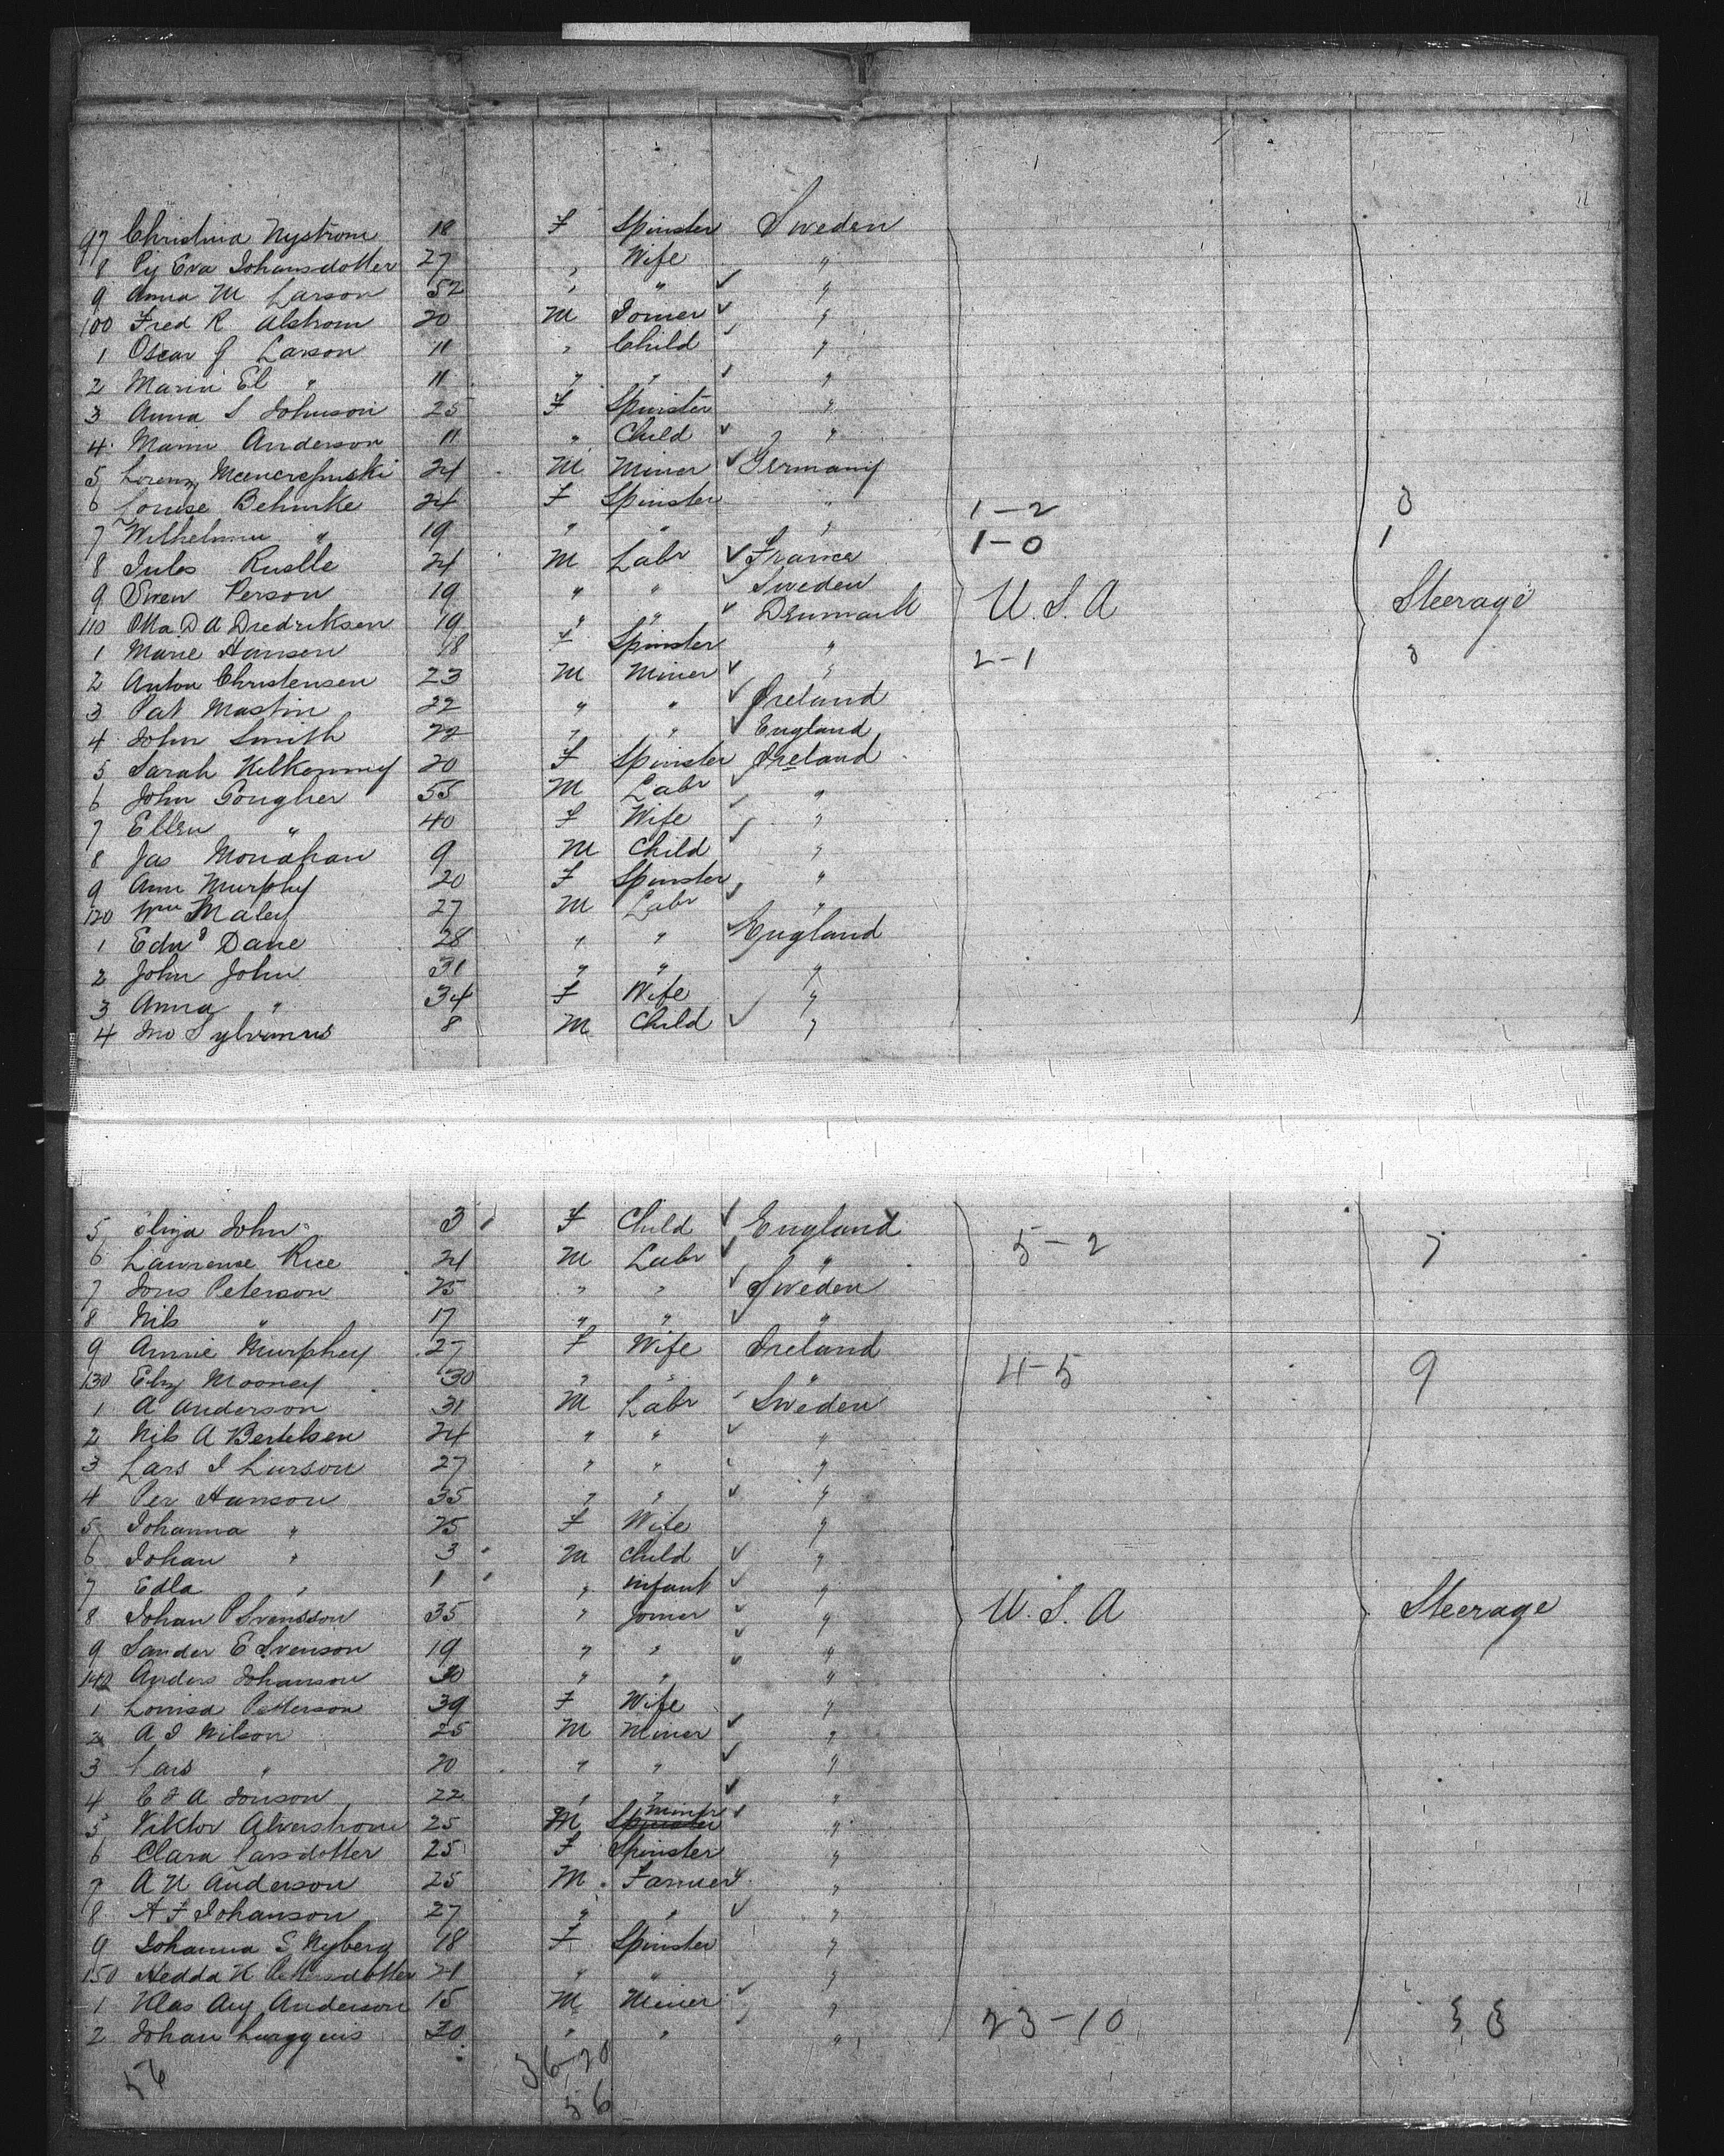 97 Christina Nystrom 18 F Spinster Sweden
8 Eva Johansdotter 27 " Wife "
9 Anna M Larson 52 " " "
100 Fred R Alstrom 20 M Joiner "
1 Oscar G Larson 11 " Child "
2 Marin El " 11 " " "
3 Anna S Johnson 25 F Spinster "
4 Marin Anderson 11 " Child "
5 Lorenz 24 M Miner Germany
6 Louise Behmke 24 F Spinster " 1-2 3
7 Wilhelmine " 19 " " " 1-0 1
8 Jules Ruelle 24 M Labr France
9 Swen Person 19 " " Sweden
110 D A Dredriksen 19 " " Denmark U.S.A Steerage
1 Marie Hansen 18 F Spinster " 2-1 3
2 Anton Christensen 23 M Miner "
3 Pat Mastin 22 " " Ireland
4 John Smith 22 " " England
5 Sarah Kilkenny 20 F Spinster Ireland
6 John Gougher 55 M Labr "
7 Ellen " 40 F Wife "
8 Jas Monahan 9 M Child "
9 Ann Murphy 20 F Spinster "
120 Wm Maley 27 M Labr "
1 Edwd Dane 28 " " England
2 John John 31 " " "
3 Anna " 34 F Wife "
4 Jno Sylvanus 8 M Child "
5 Eliza John 3 F Child England 5-2 7
6 Lawrence Rice 24 M Labr "
7 Jons Peterson 25 " " Sweden
8 Nils " 17 " " "
9 Annie Murphey 27 F Wife Ireland
130 Eliz Mooney 30 " " " 4-5 9
1 A Anderson 31 M Labr Sweden
2 Nils A Bertelsen 24 " " "
3 Lars I Larson 27 " " "
4 Per Hanson 35 " " "
5 Johanna " 25 F Wife "
6 Johan " 3 M Child "
7 Edla " 1 " Infant "
8 Johan P Svensson 35 " Joiner " U.S.A Steerage
9 Sander E Svenson 19 " " "
140 Anders Johanson 30 " " "
1 Lovisa Petterson 39 F Wife "
2 A I Nilson 25 M Miner "
3 Lars " 20 " " "
4 C F A Jonson 22 " " "
5 Viktor Alverstrom 25 M Spinster Miner "
6 Clara Larsdotter 25 F Spinster "
7 A N Anderson 25 M Farmer "
8 A F Johanson 27 " " "
9 Johanna S Nyberg 18 F Spinster "
150 Hedda K Pettersdotter 21 " " "
1 Klas Aug Anderson 15 M Miner "
2 Johan 30 " " " 23-10 33
56 36-20
56